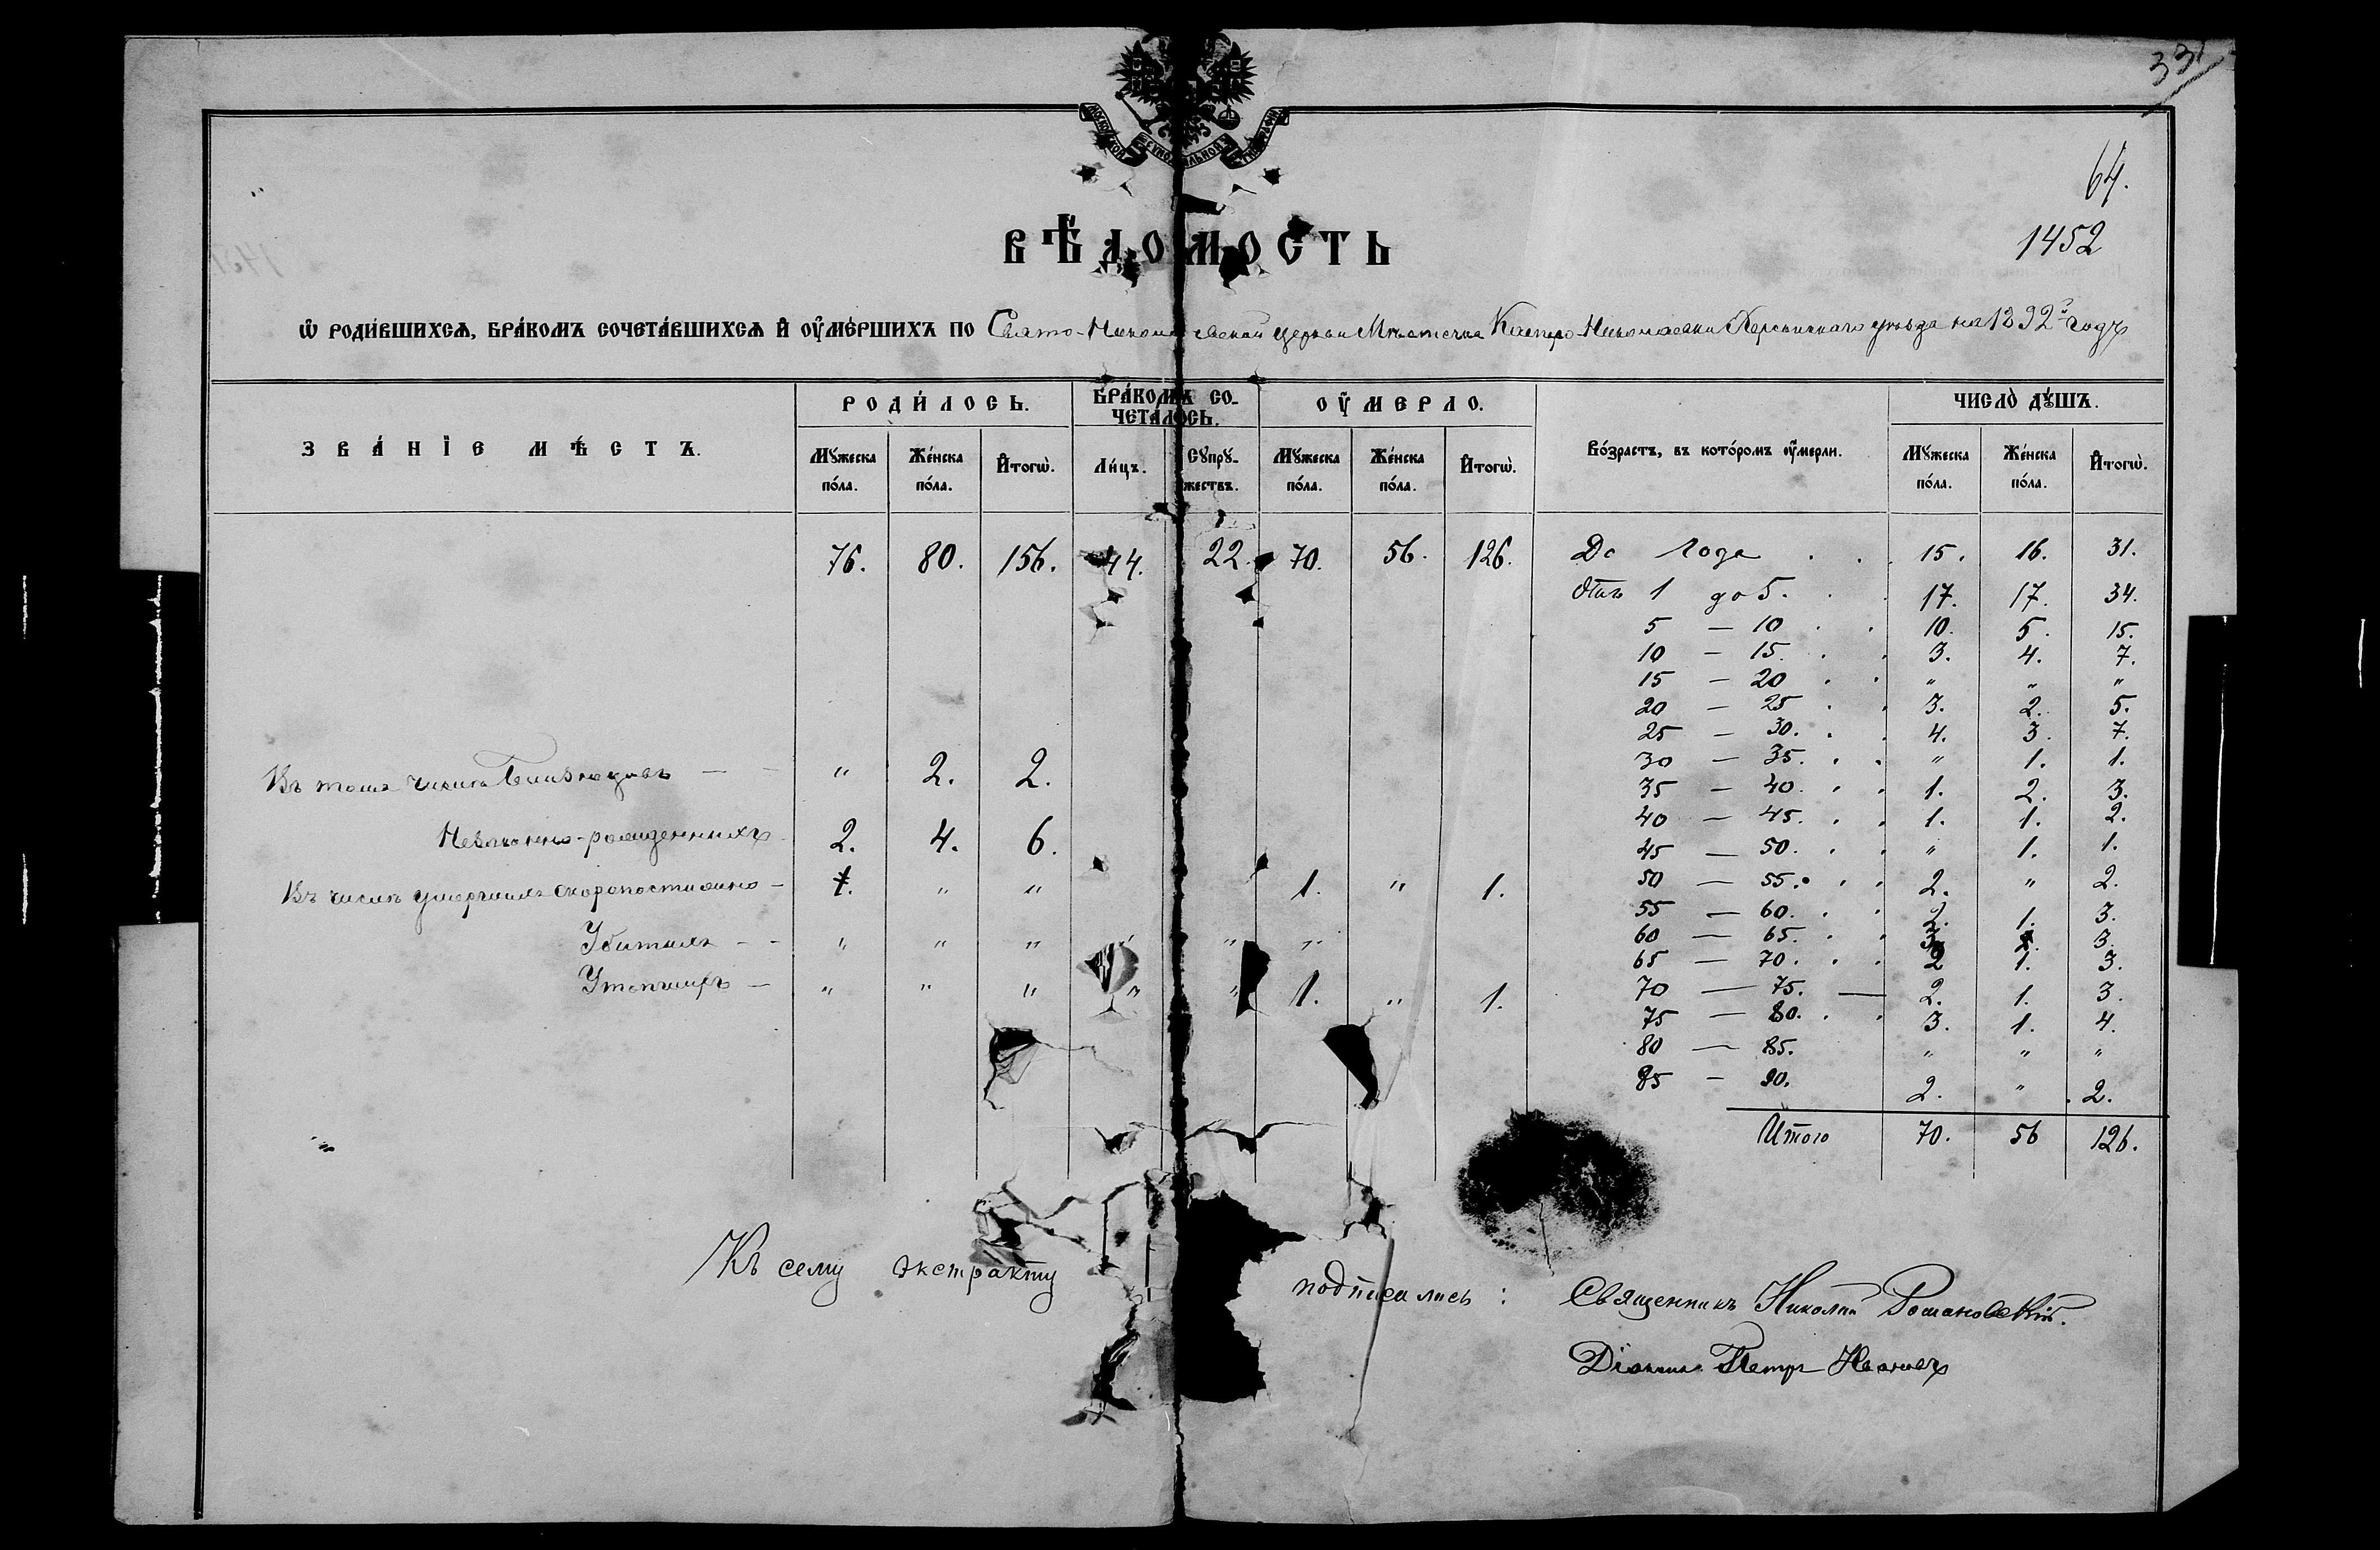 331
64.
1452
МОСКОВСКОЙ СѴНОДАЛЬНОЙ ТИПОГРАФІИ
ВѢДОМОСТЬ
Ѡ РОДИ́ВШИХСѦ, БРА́КОМЪ СОЧЕТА́ВШИХСѦ И҆ ОУ҆МЕ́РШИХЪ ПО Свято-Николаевской церкви Мѣстечка Каспро-Николаевки Херсонскаго уѣзда на 1892й годъ
ЗВА́НІЕ МѢ́СТЪ. РОДИ́ЛОСЬ. БРА́КОМЪ СО-ЧЕТАЛОСЬ. ОУ҆МЕРЛО. Во́зрастъ, въ кото́ромъ оу҆мерли. ЧИСЛО̀ ДꙊ́ШЪ.
Мꙋжеска по́ла. Же́нска по́ла. И҆того̀. Ли́цъ. Сꙋпрꙋ-жествъ. Мꙋжеска по́ла. Же́нска по́ла. И҆того̀. Мꙋжеска по́ла. Же́нска по́ла. И҆того̀.
76. 80. 156. 44. 22. 70. 56. 126. До 1 года . . 15. 16. 31.
Отъ 1 до 5. . . 17. 17. 34.
5 — 10 . . 10. 5. 15.
10 — 15. . . 3. 4. 7.
15 — 20 . . " " "
20 — 25 . . 3. 2. 5.
25 — 30. . . 4. 3. 7.
30 — 35. . . " 1. 1.
Въ томъ числѣ Близнецовъ — — " 2. 2. 35 — 40. . . 1. 2. 3.
40 — 45. . . 1. 1. 2.
Незаконно-рожденныхъ 2. 4. 6. 45 — 50. . . " 1. 1.
Въ числѣ умершихъ скоропостижно — 1. " " 1. " 1. 50 — 55. . . 2. " 2.
55 — 60. . . 2. 1. 3.
Убитыхъ - - " " " " " " 60 — 65. . . 3.
65 — 70. . . 2 1. 3.
Утопшихъ — " " " " " 1. " 1. 70 — 75. — 2. 1. 3.
75 — 80. . . 3. 1. 4.
80 — 85. " " "
85 — 90. 2. " 2.
Итого 70. 56 126.
Къ сему экстракту подписались : Священникъ Николай Романовскій.
Діаконъ Петръ Ивановъ